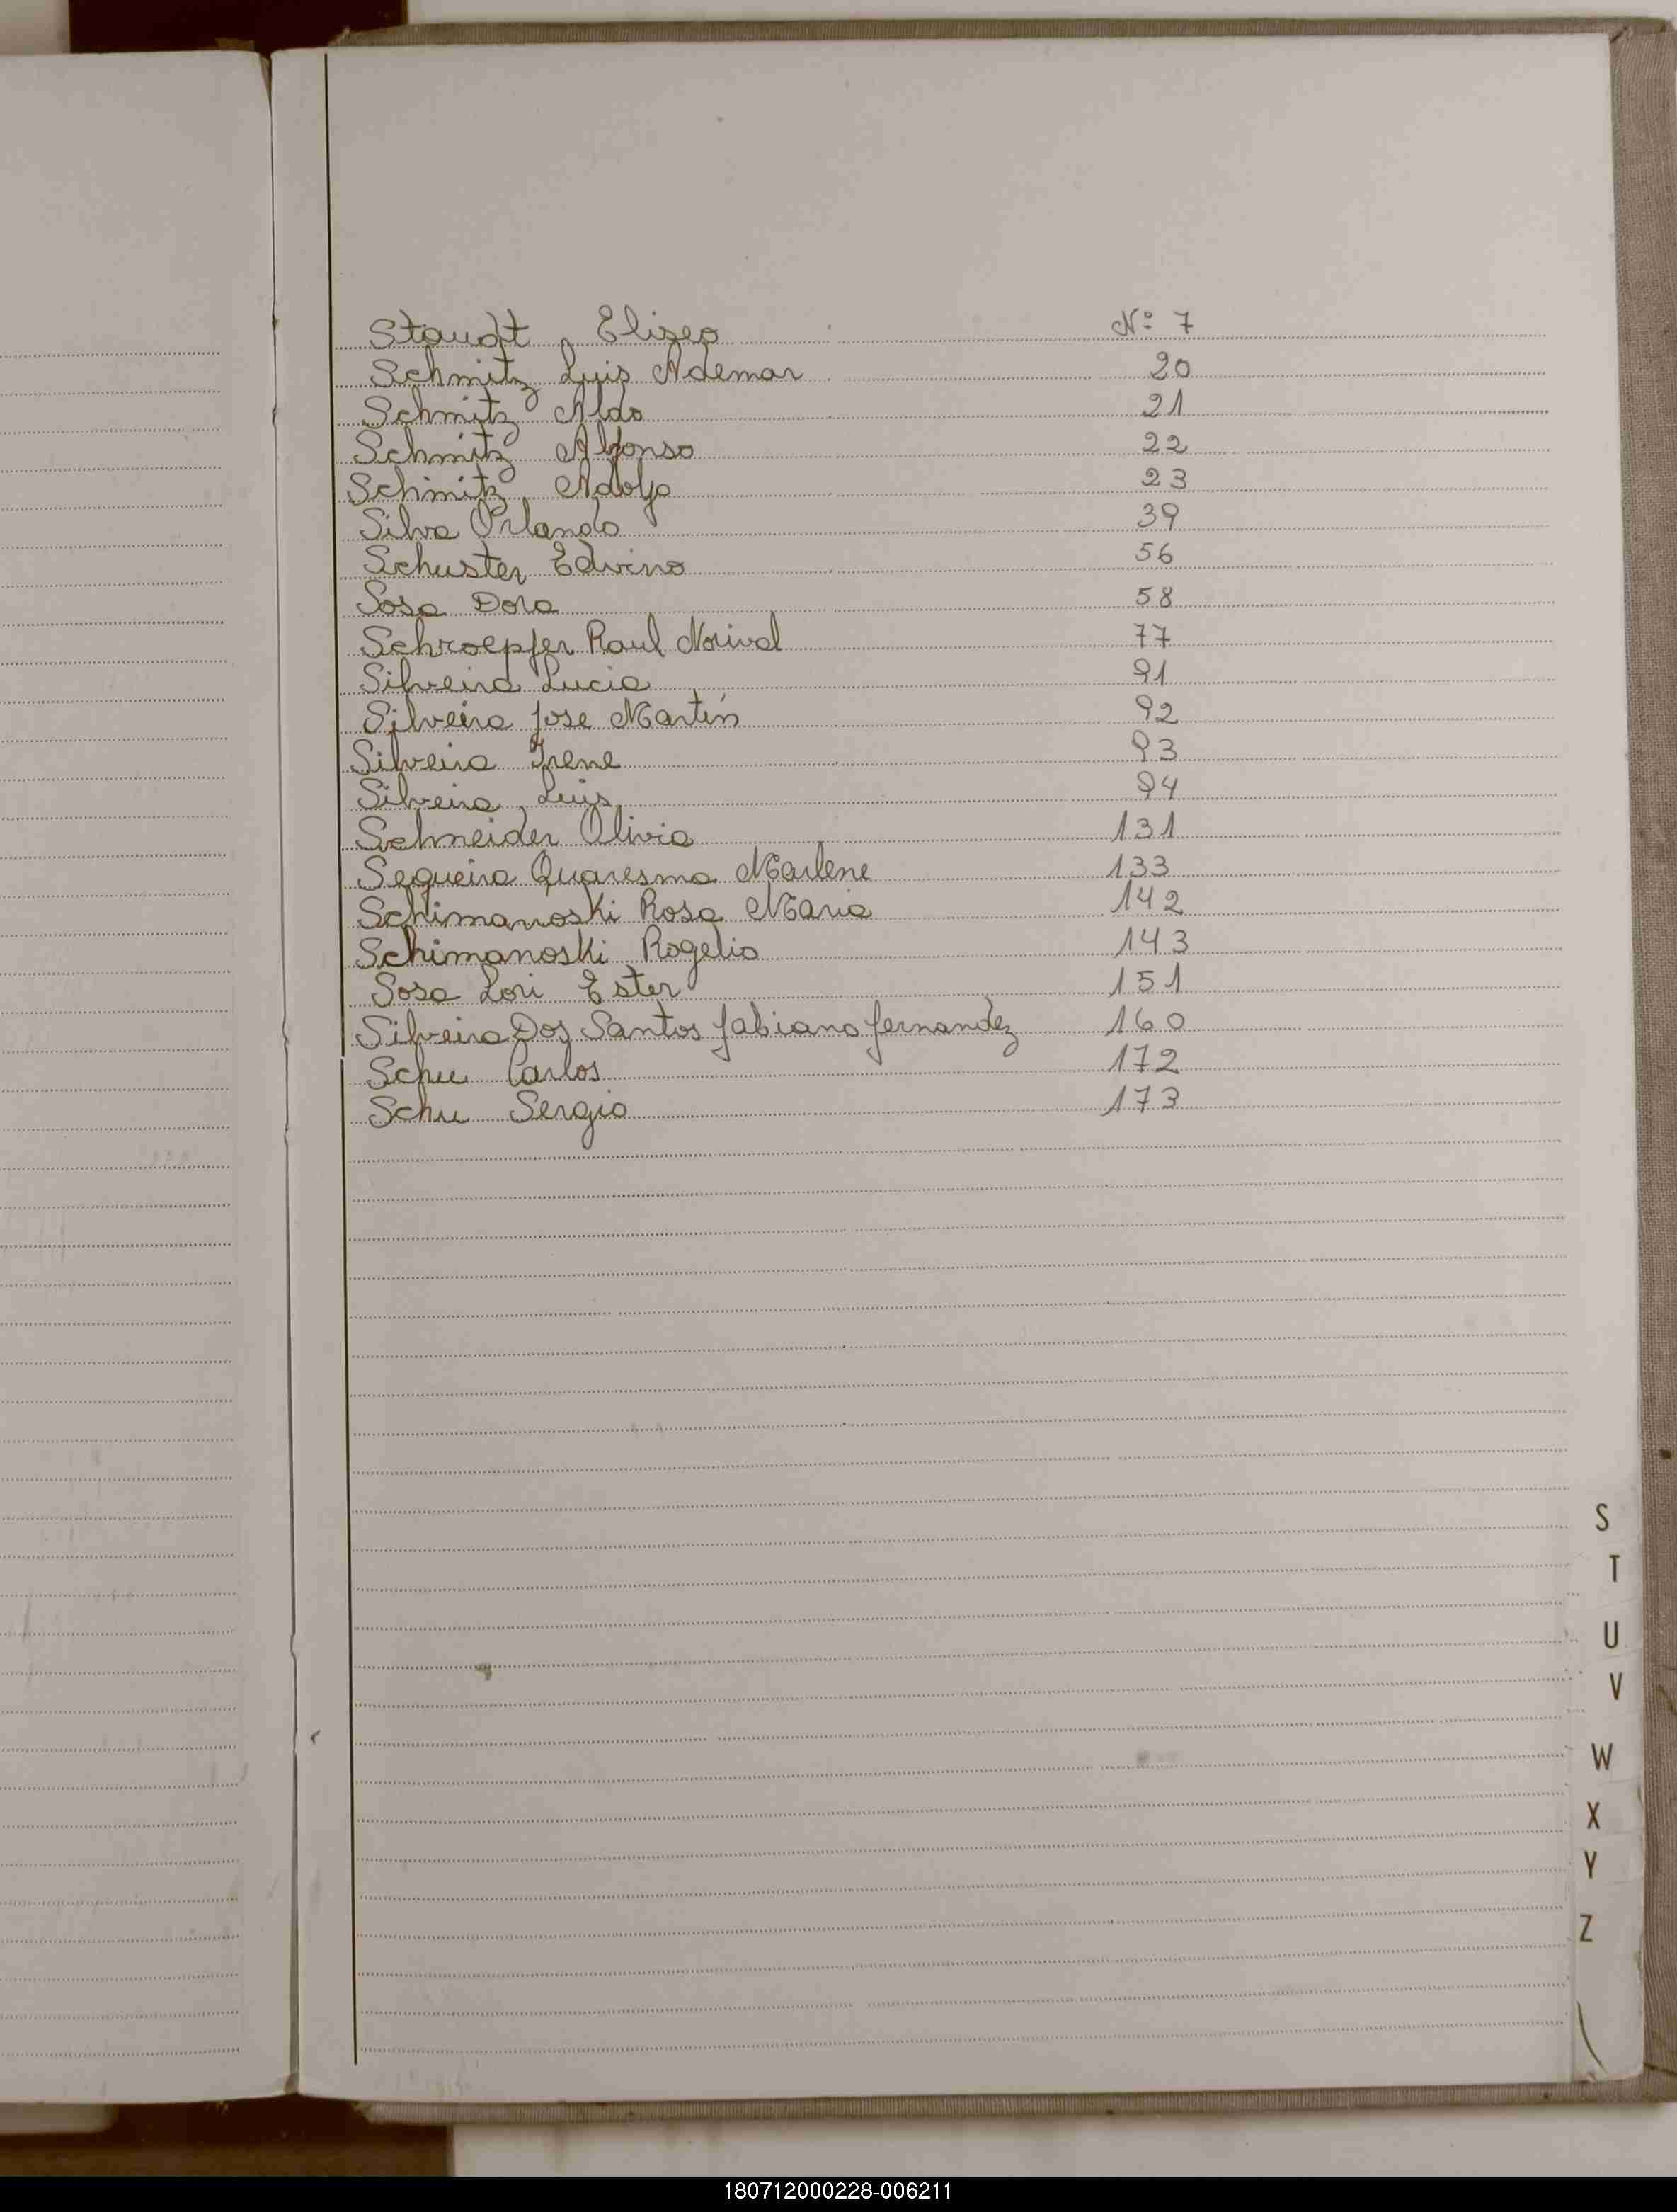 Staudt, Eliseo Nº 7
Schmitz Luis Ademar 20
Schmitz Aldo 21
Schmitz Alfonso 22
Schmitz, Adolfo 23
Silva Orlando 39
Schuster Edvino 56
Sosa Dora 58
Schroepfer Raul Norival 77
Silveira Lucia 91
Silveira Jose Martín 92
Silveira Irene 93
Silveira, Luis 94
Schneider Olivia 131
Sequeira Quaresma Marlene 133
Schimanoski Rosa Maria 142
Schimanoski Rogelio 143
Sosa Lori Ester 151
Silveira Dos Santos fabiano fernandez 160
Schu Carlos 172
Schu Sergio 173
S
T
U
V
W
X
Y
Z
180712000228-006211